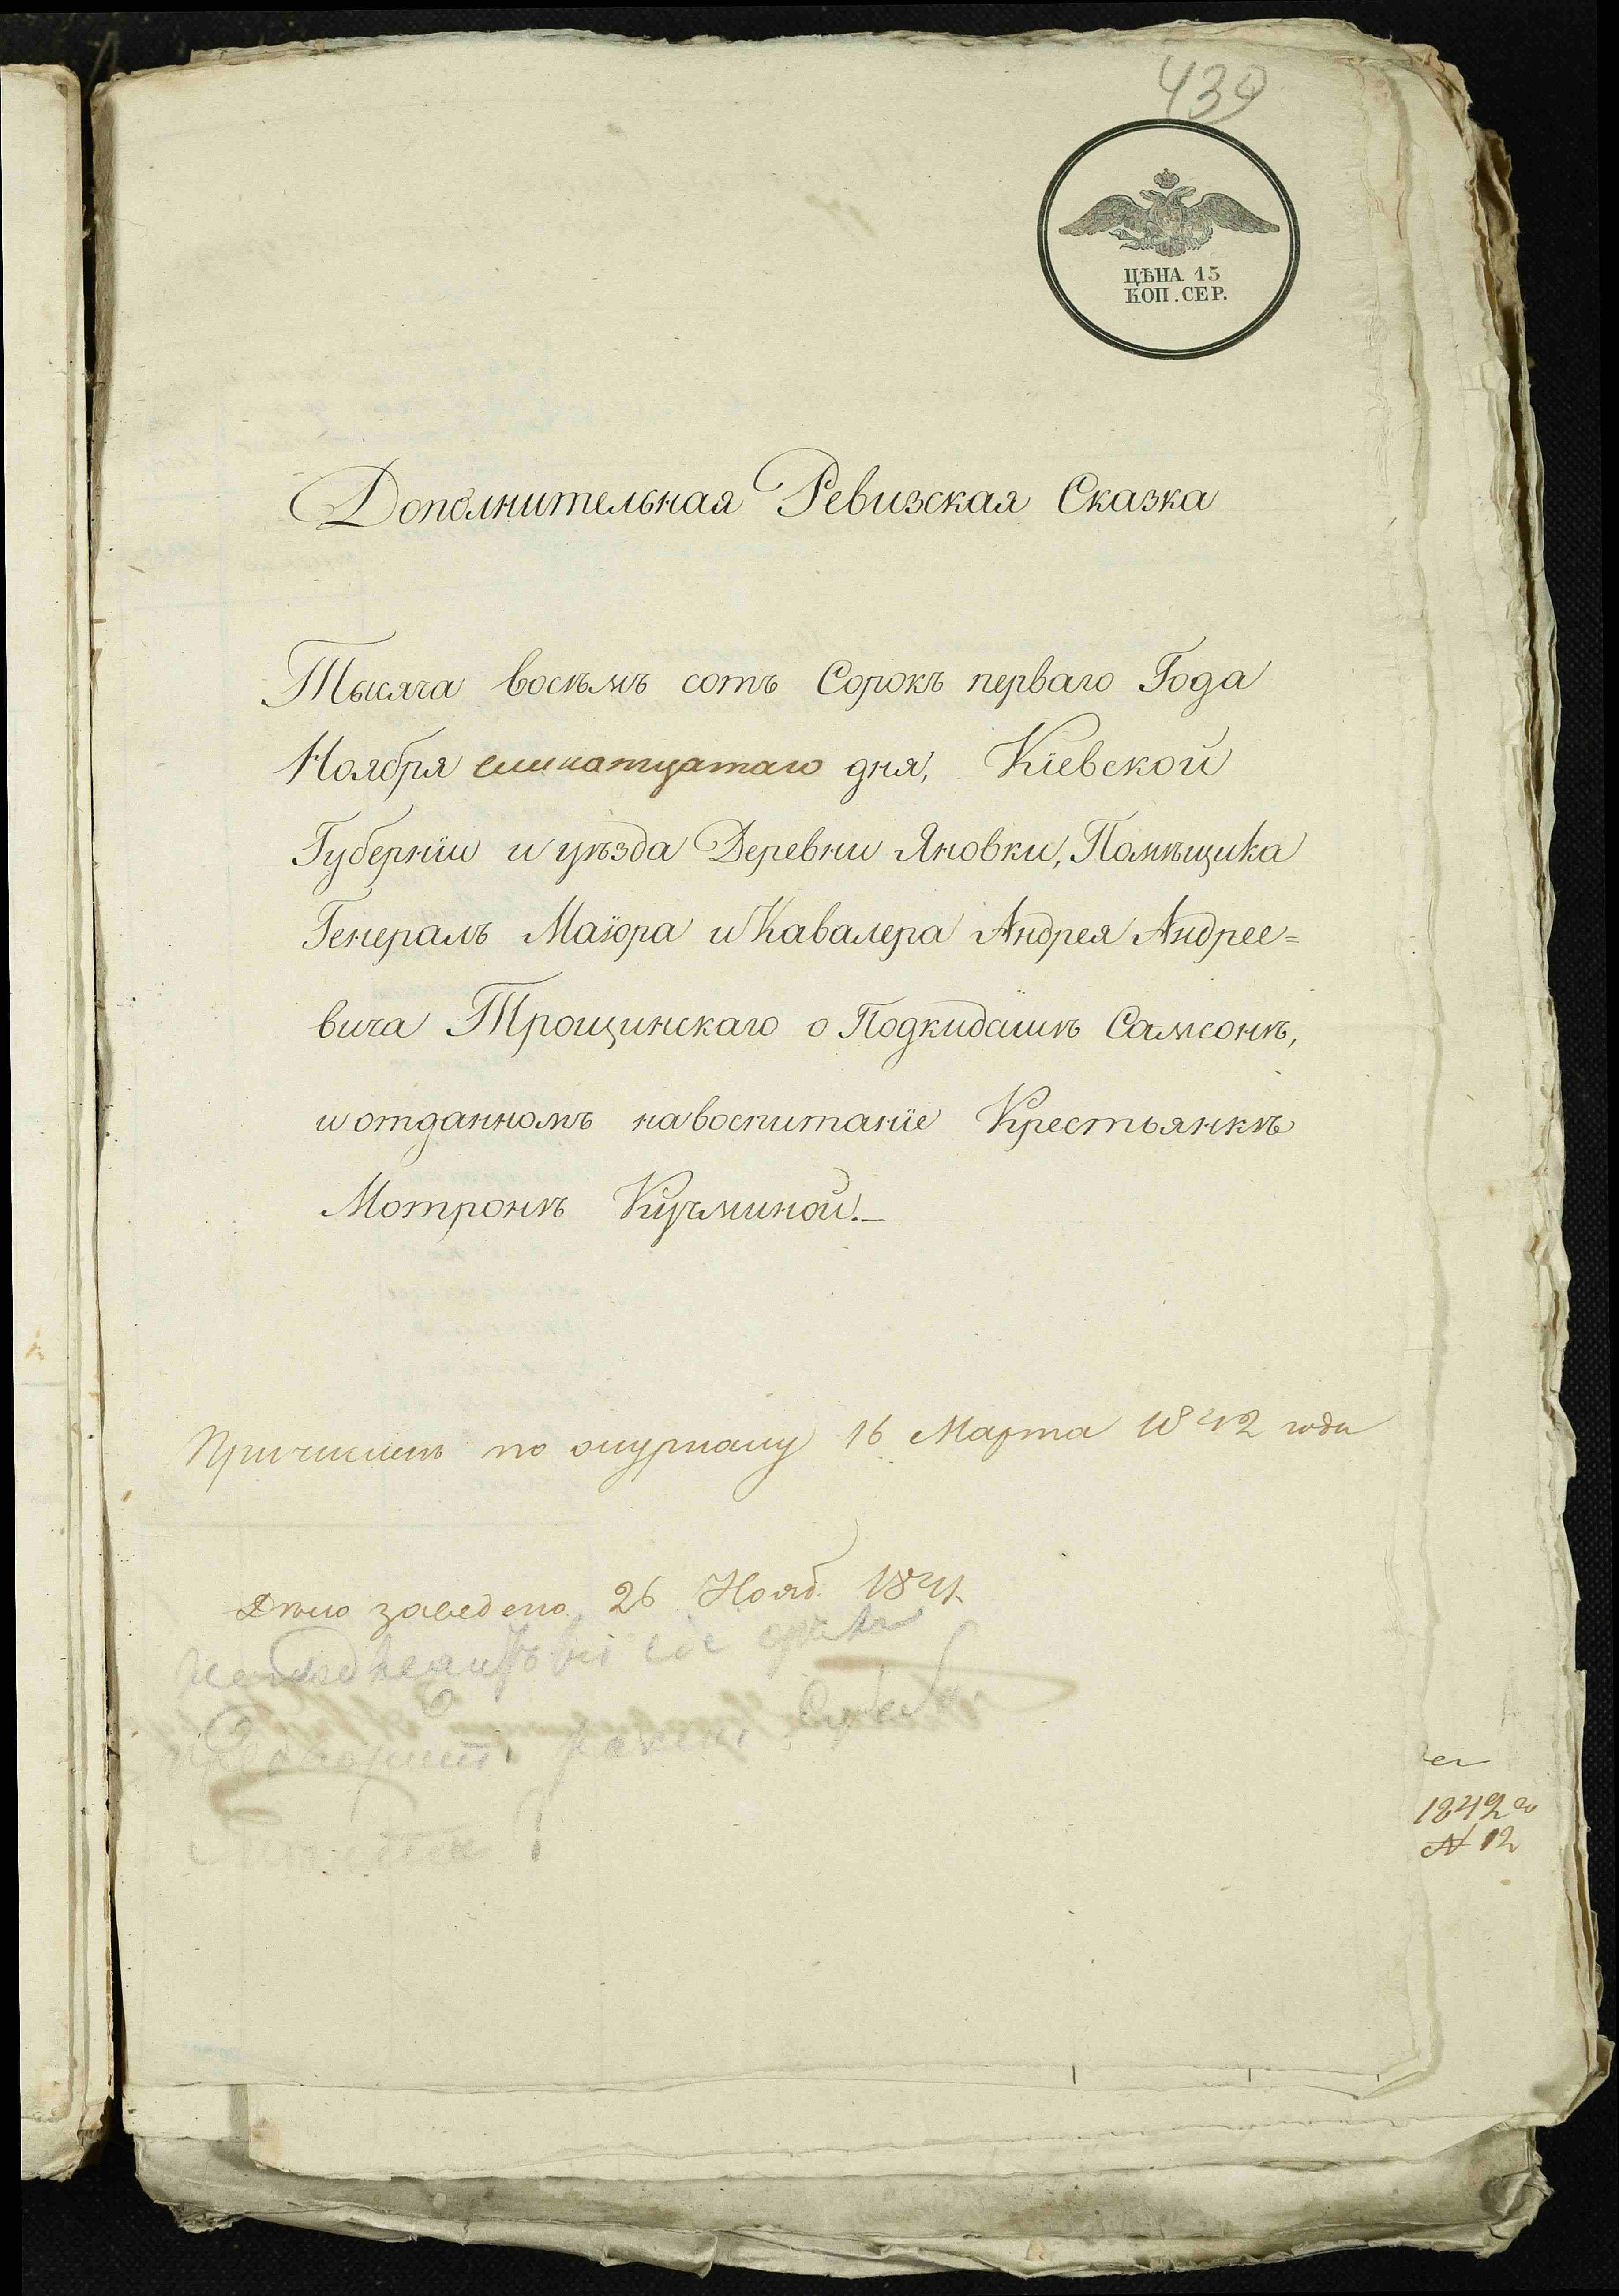 439
ЦѢНА 15
КОП. СЕР.
Дополнительная Ревизская Сказка
Тысяча восемъ сотъ Сорокъ перваго Года
Ноября дня, Кіевской
Губерніи и уѣзда Деревни Яновки, Помѣщика
Генералъ Маіора и Кавалера Андрея Андрее=
вича Трощинскаго о Подкидышѣ Самсонѣ,
и отданномъ на воспитаніе Крестьянкѣ
Мотронѣ Кучминой.—
Причисленъ по журналу 16 Марта 1842 года
Дѣло заведено 26 Нояб. 1841.
1842го
№ 12